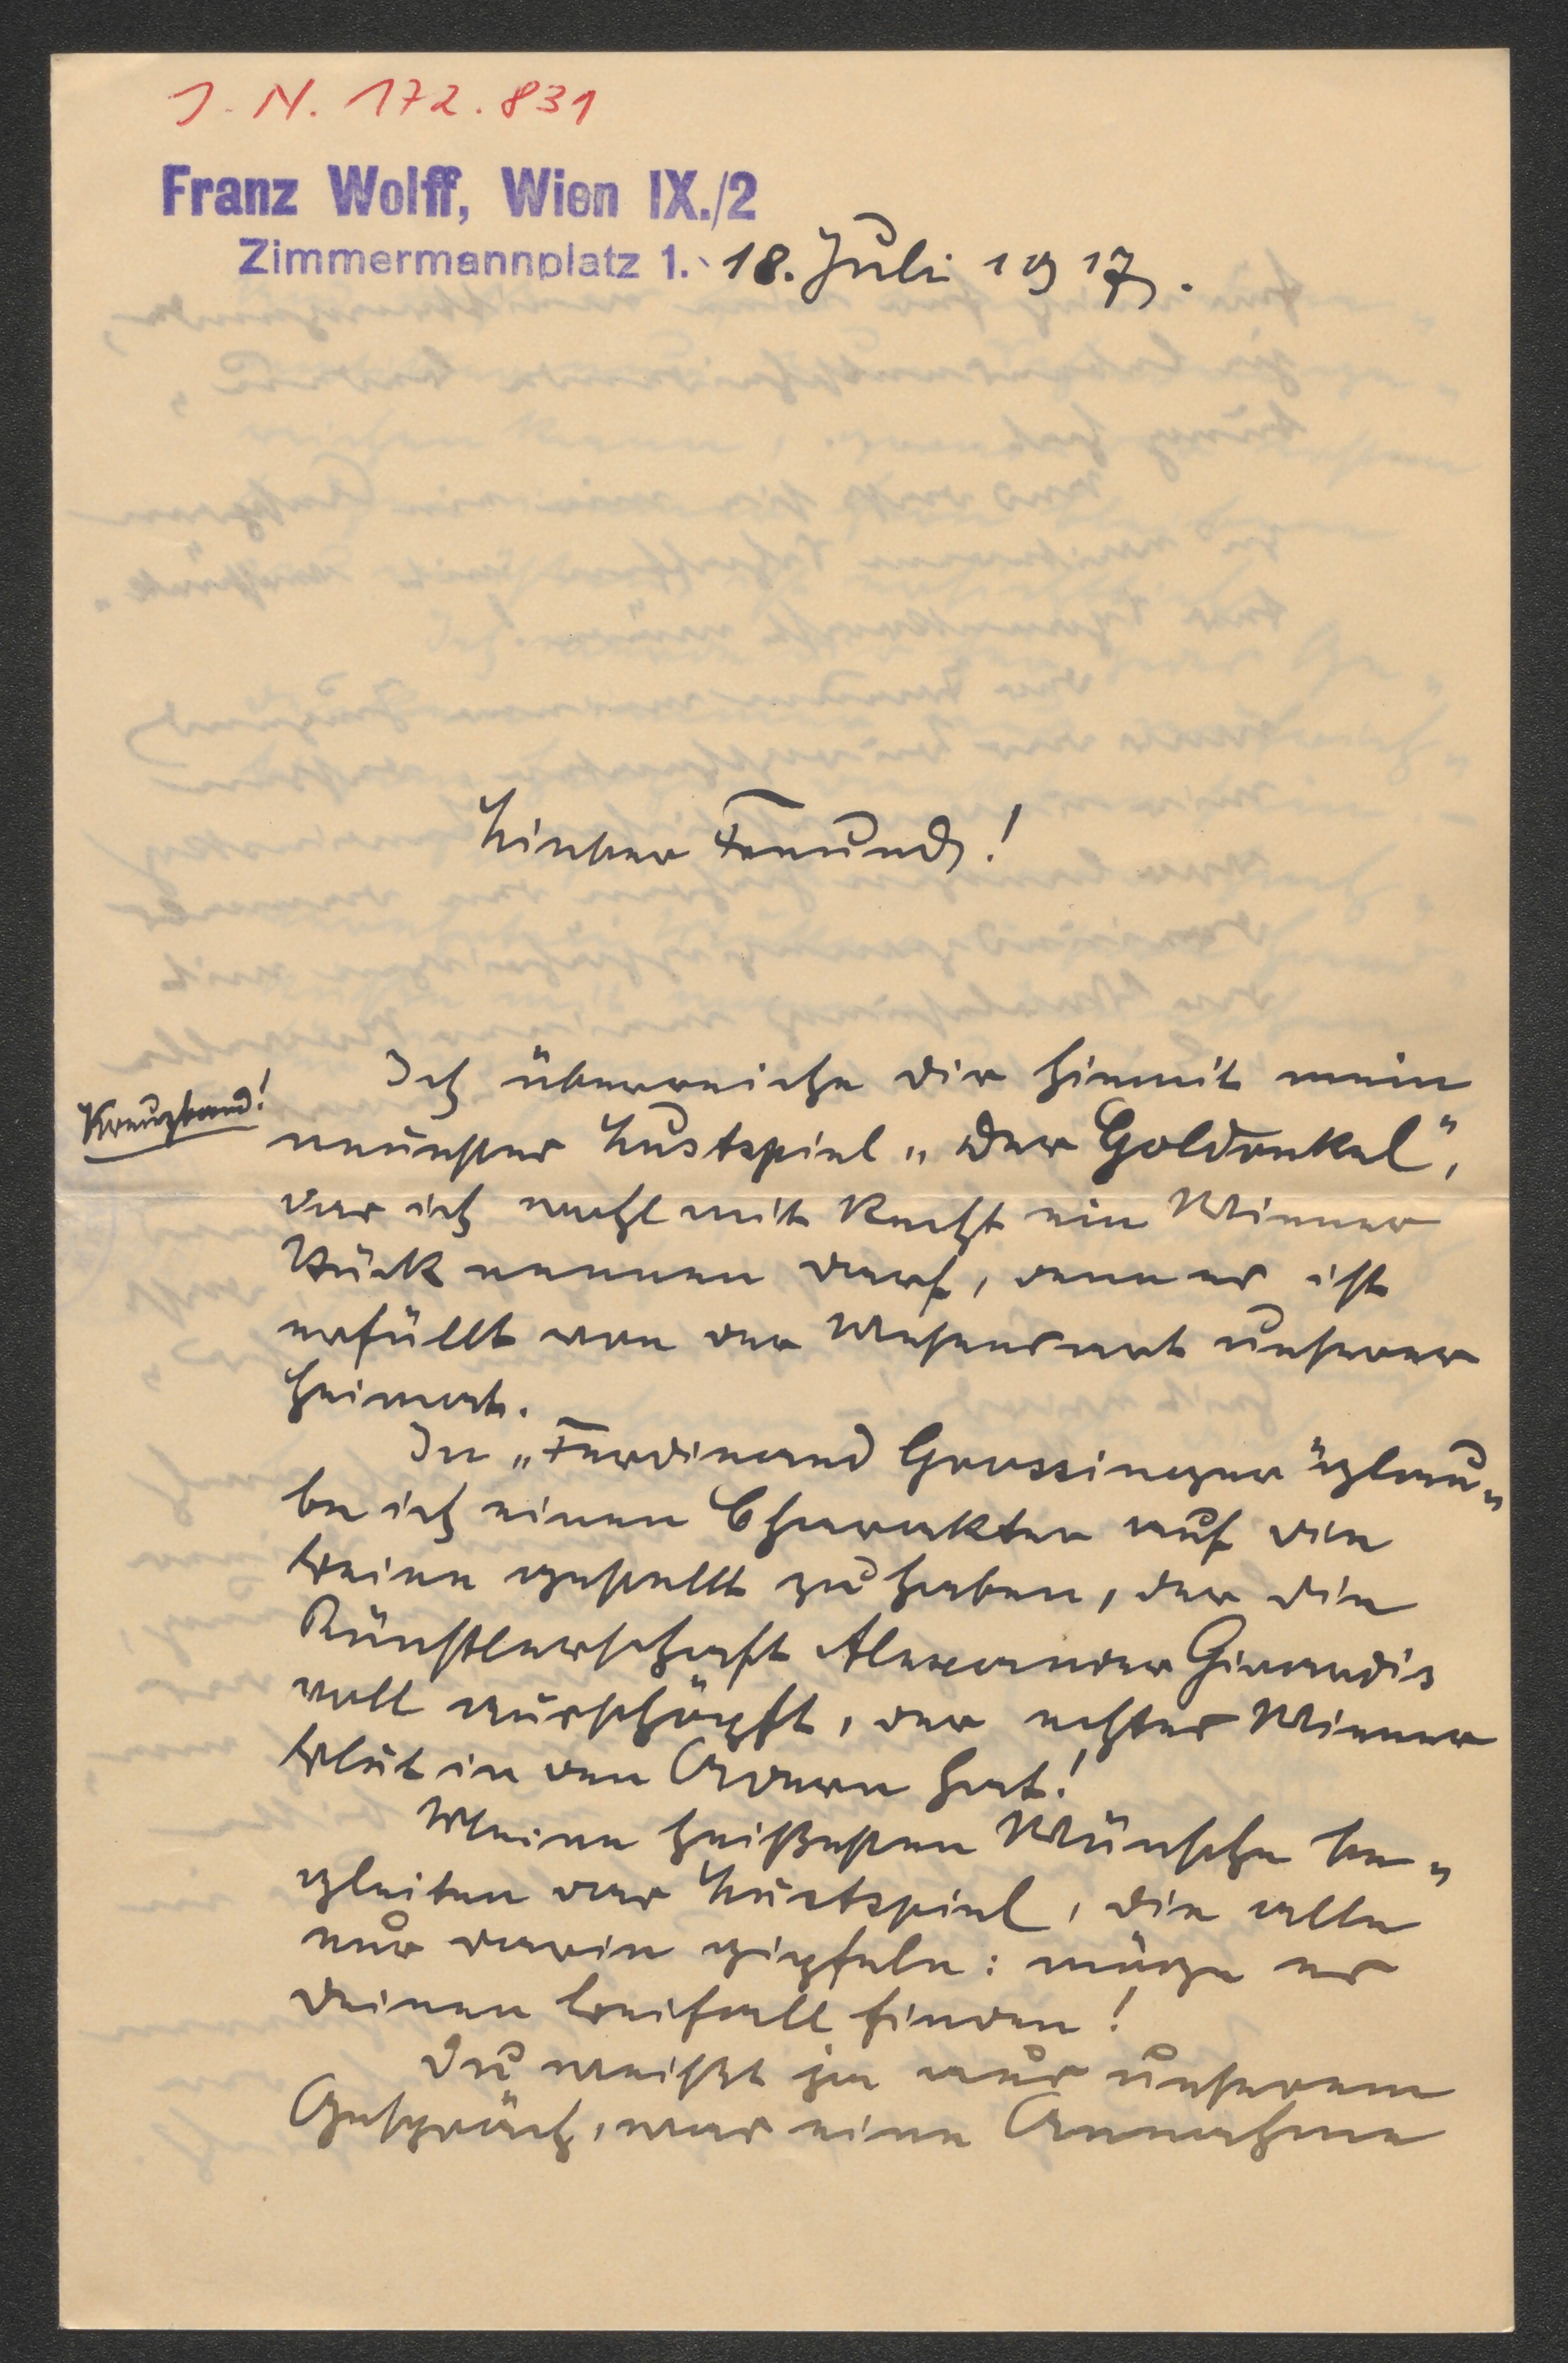 J. N. 172.831
Franz Wolff, Wien IX./2
Zimmermannplatz 1. 18. Juli 1917.
Lieber Freund!
Ich überreiche dir hiemit mein
Kreuzband!
neuestes Lustspiel „Der Goldonkel",
das ich wohl mit Recht ein Wiener
Stück nennen darf, denn es ist
erfüllt von der Wesensart unserer
Heimat.
In „Ferdinand Grassinger" glau„
be ich einen Charakter auf die
Beine gestellt zu haben, der die
Künstlerschaft Alexander Girardis
voll ausschöpft, der echtes Wiener
Blut in den Adern hat!
Meine heißesten Wünsche be„
gleiten das Lustspiel, die alle
nur darin gipfeln: möge es
deinen Beifall finden!
Du weißt ja aus unserem
Gespräch, was eine Annahme